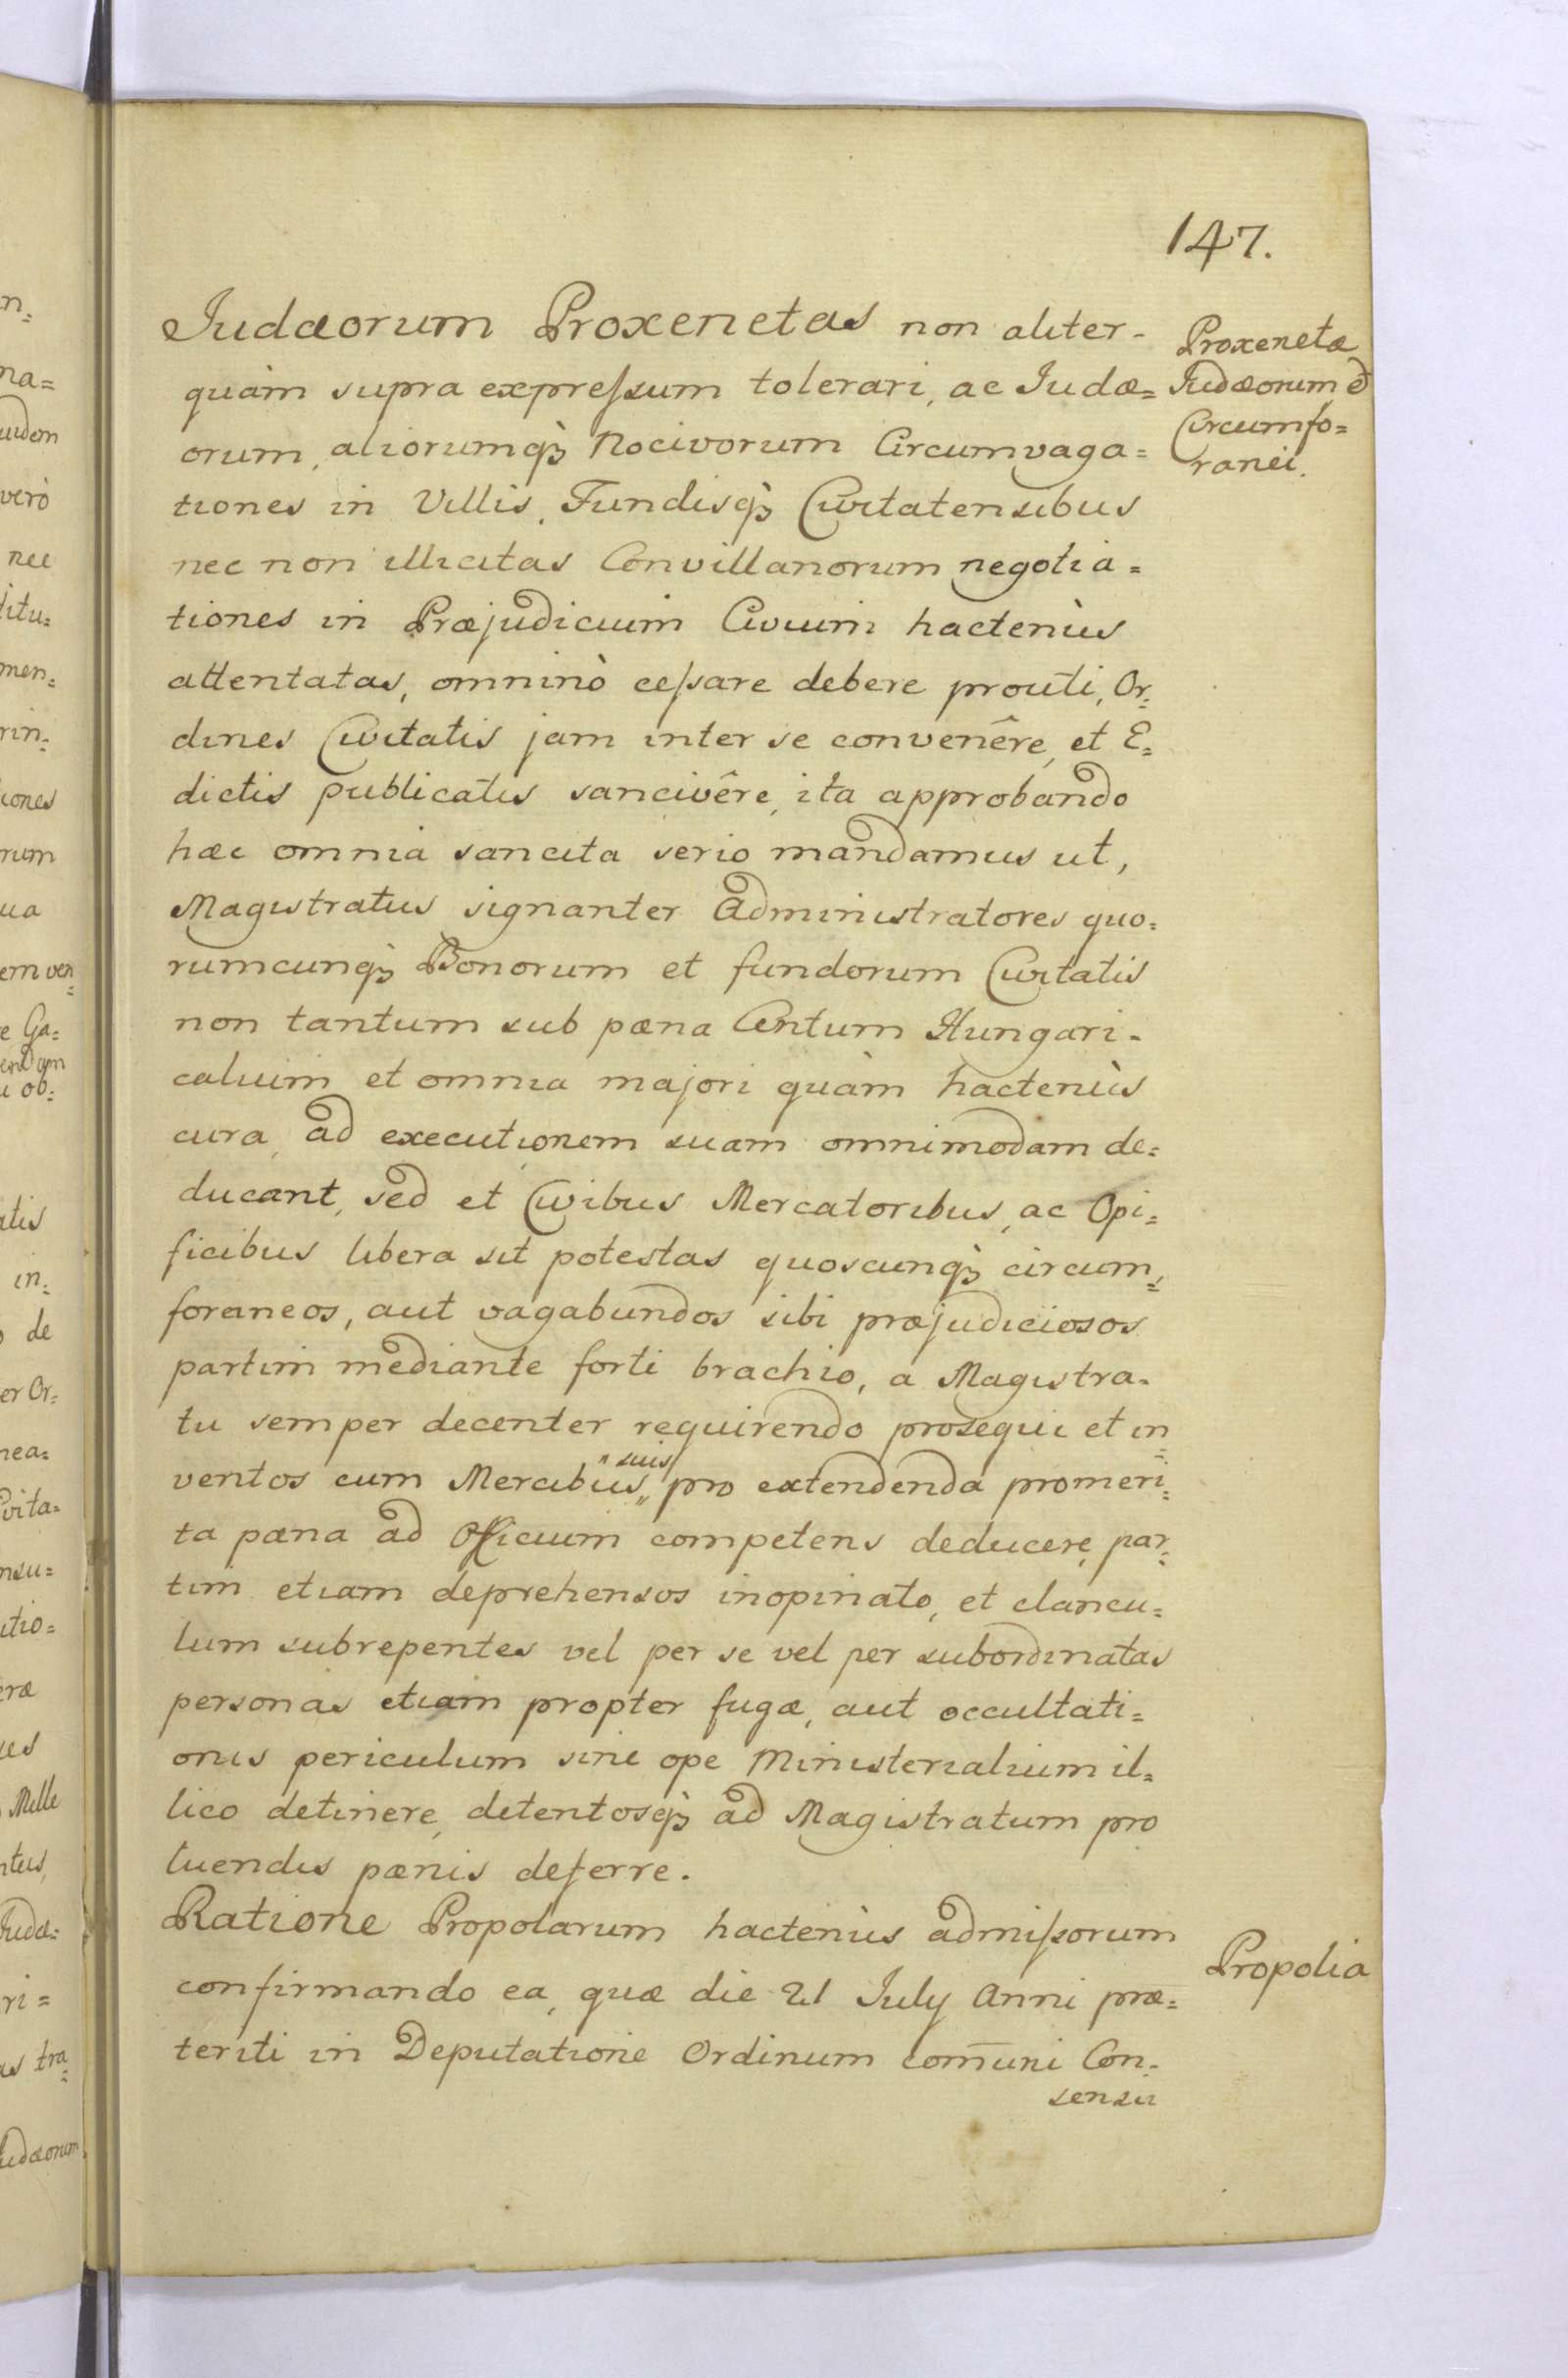 147.
Judæorum Proxenetas non aliter-
quàm supra expressum tolerari, ac Judæ=
orum, aliorumq3 Nocivorum Circumvaga=
tiones in Villis, Fundisq3 Civitatensibus
nec non illicitas Convillanorum negotia=
tiones in Præjudicium Civium hactenùs
attentatas, omninò cessare debere prouti, Or=
dines Civitatis jam inter se convenêre, et E=
dictis publicatis sancivêre, ita approbando
hæc omnia sancita serio mandamus ut,
Magistratus signanter Administratores quo=
rumcunq3 Bonorum et fundorum Civitatis
non tantum sub pæna Centum Hungari=
calium et omnia majori quàm hactenùs
cura, ad executionem suam omnimodam de=
ducant, sed et Civibus Mercatoribus, ac Opi=
ficibus libera sit potestas quoscunq3 circum=
foraneos, aut vagabundos sibi præjudiciosos
partim mediante forti brachio, a Magistra=
tu semper decenter requirendo prosequi et in=
ventos cum Mercibus suis pro extendenda promeri=
ta pæna ad Officium competens deducere, par=
tim etiam deprehensos inopinato, et clancu=
lum subrepentes vel per se vel per subordinatas
personas etiam propter fugæ, aut occultati=
onis periculum sine ope Ministerialium il=
lico detinere, detentosq3 ad Magistratum pro
luendis pænis deferre.
Ratione Propolarum hactenùs admissorum
confirmando ea, quæ die 21 July Anni præ=
teriti in Deputatione Ordinum com̄uni Con=
sensu
Proxenetæ
Judæorum et
Circumfo=
ranei.
Propolia